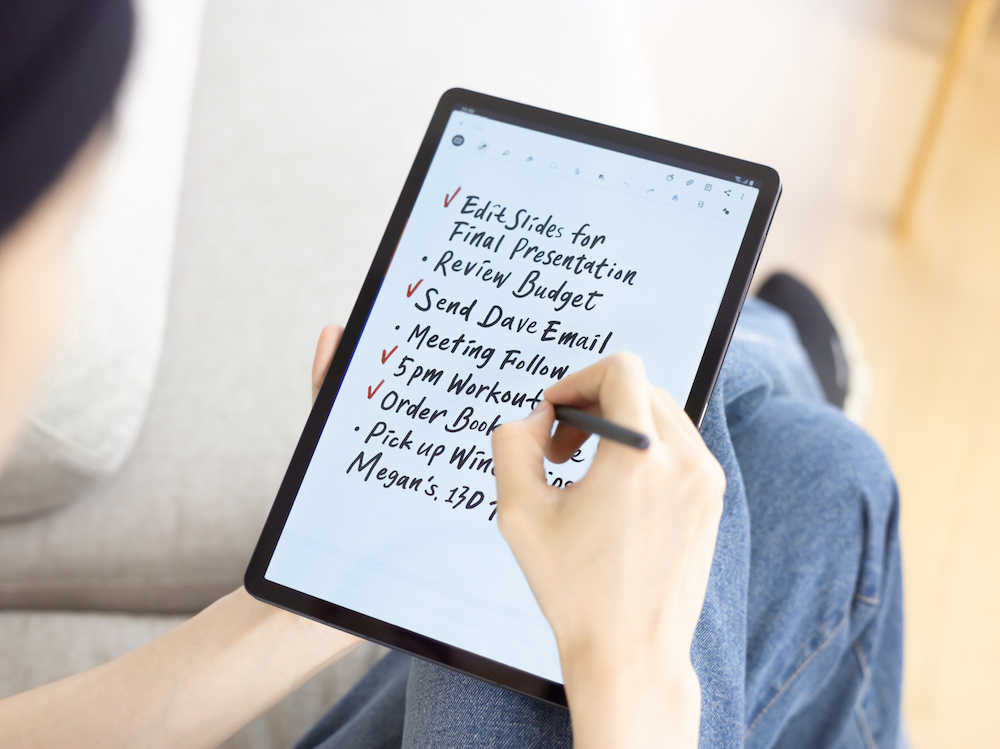 ✓ Edit Slides for
Final Presentation
• Review Budget
✓ Send Dave Email
• Meeting Follow
✓ 5pm Workout
✓ Order
• Pick up
Megan's.